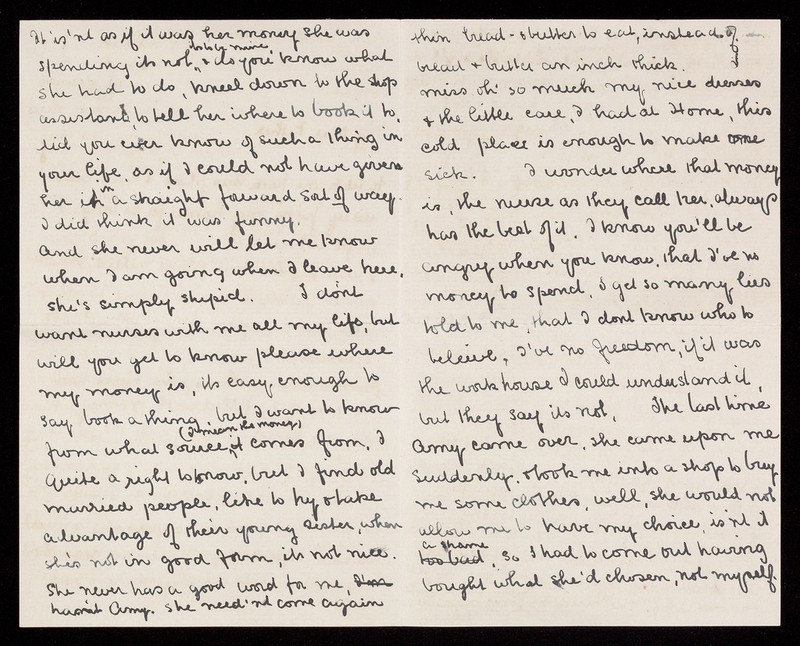 It is'nt as if it was her money she was
spending its not, to be mine, & do you know what
she had to do, kneel down to the shop
assistant, to tell her where to book it to,
did you ever know of such a thing in
your life, as if I could not have given
her it, in a straight forward sort of way.
I did think it was funny.
And she never will let me know
when I am going when I leave here,
she's simply stupid. I don't
want nurses with me all my life, but
will you get to know please where
my money is, its easy enough to
say book a thing, but I want to know
from what source, (I mean the money) it comes from, I
quite a right to know, but I find old
married people, like to try & take
advantage of their young sister, when
she's not in good form, its not nice.
She never has a good word for me,
has'nt Amy. she need'nt come again
thin bread & butter to eat, instead of
bread & butter an inch thick.
miss oh' so much my nice dresses
& the little care, I had at Home, this
cold place is enough to make one
sick. I wonder where that money
is, the nurse as they call her, always
has the best of it. I know you'll be
angry when you know, that I've no
money to spend, I get so many lies
told to me, that I dont know who to
beleive, I've no freedom, if it was
the workhouse I could understand it,
but they say its not, The last time
Amy came over, she came upon me
suddenly, & took me into a shop to buy
me some clothes, well, she would not
allow me to have my choice, is'nt it
too bad a shame, so I had to come out having
bought what she'd chosen, not myself.